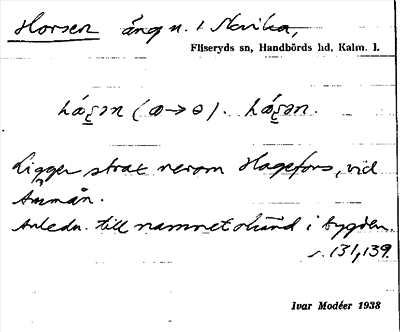 Horsen äng n. t Skrika,
Fliseryds sn, Handbörds hd, Kalm. l.
hásən (a→ɵ). hásən.
Ligger strax nerom Hagefors, vid
Ämmån.
Anledn. till namnet okänd i bygden.
s. 131, 139.
Ivar Modéer 1938